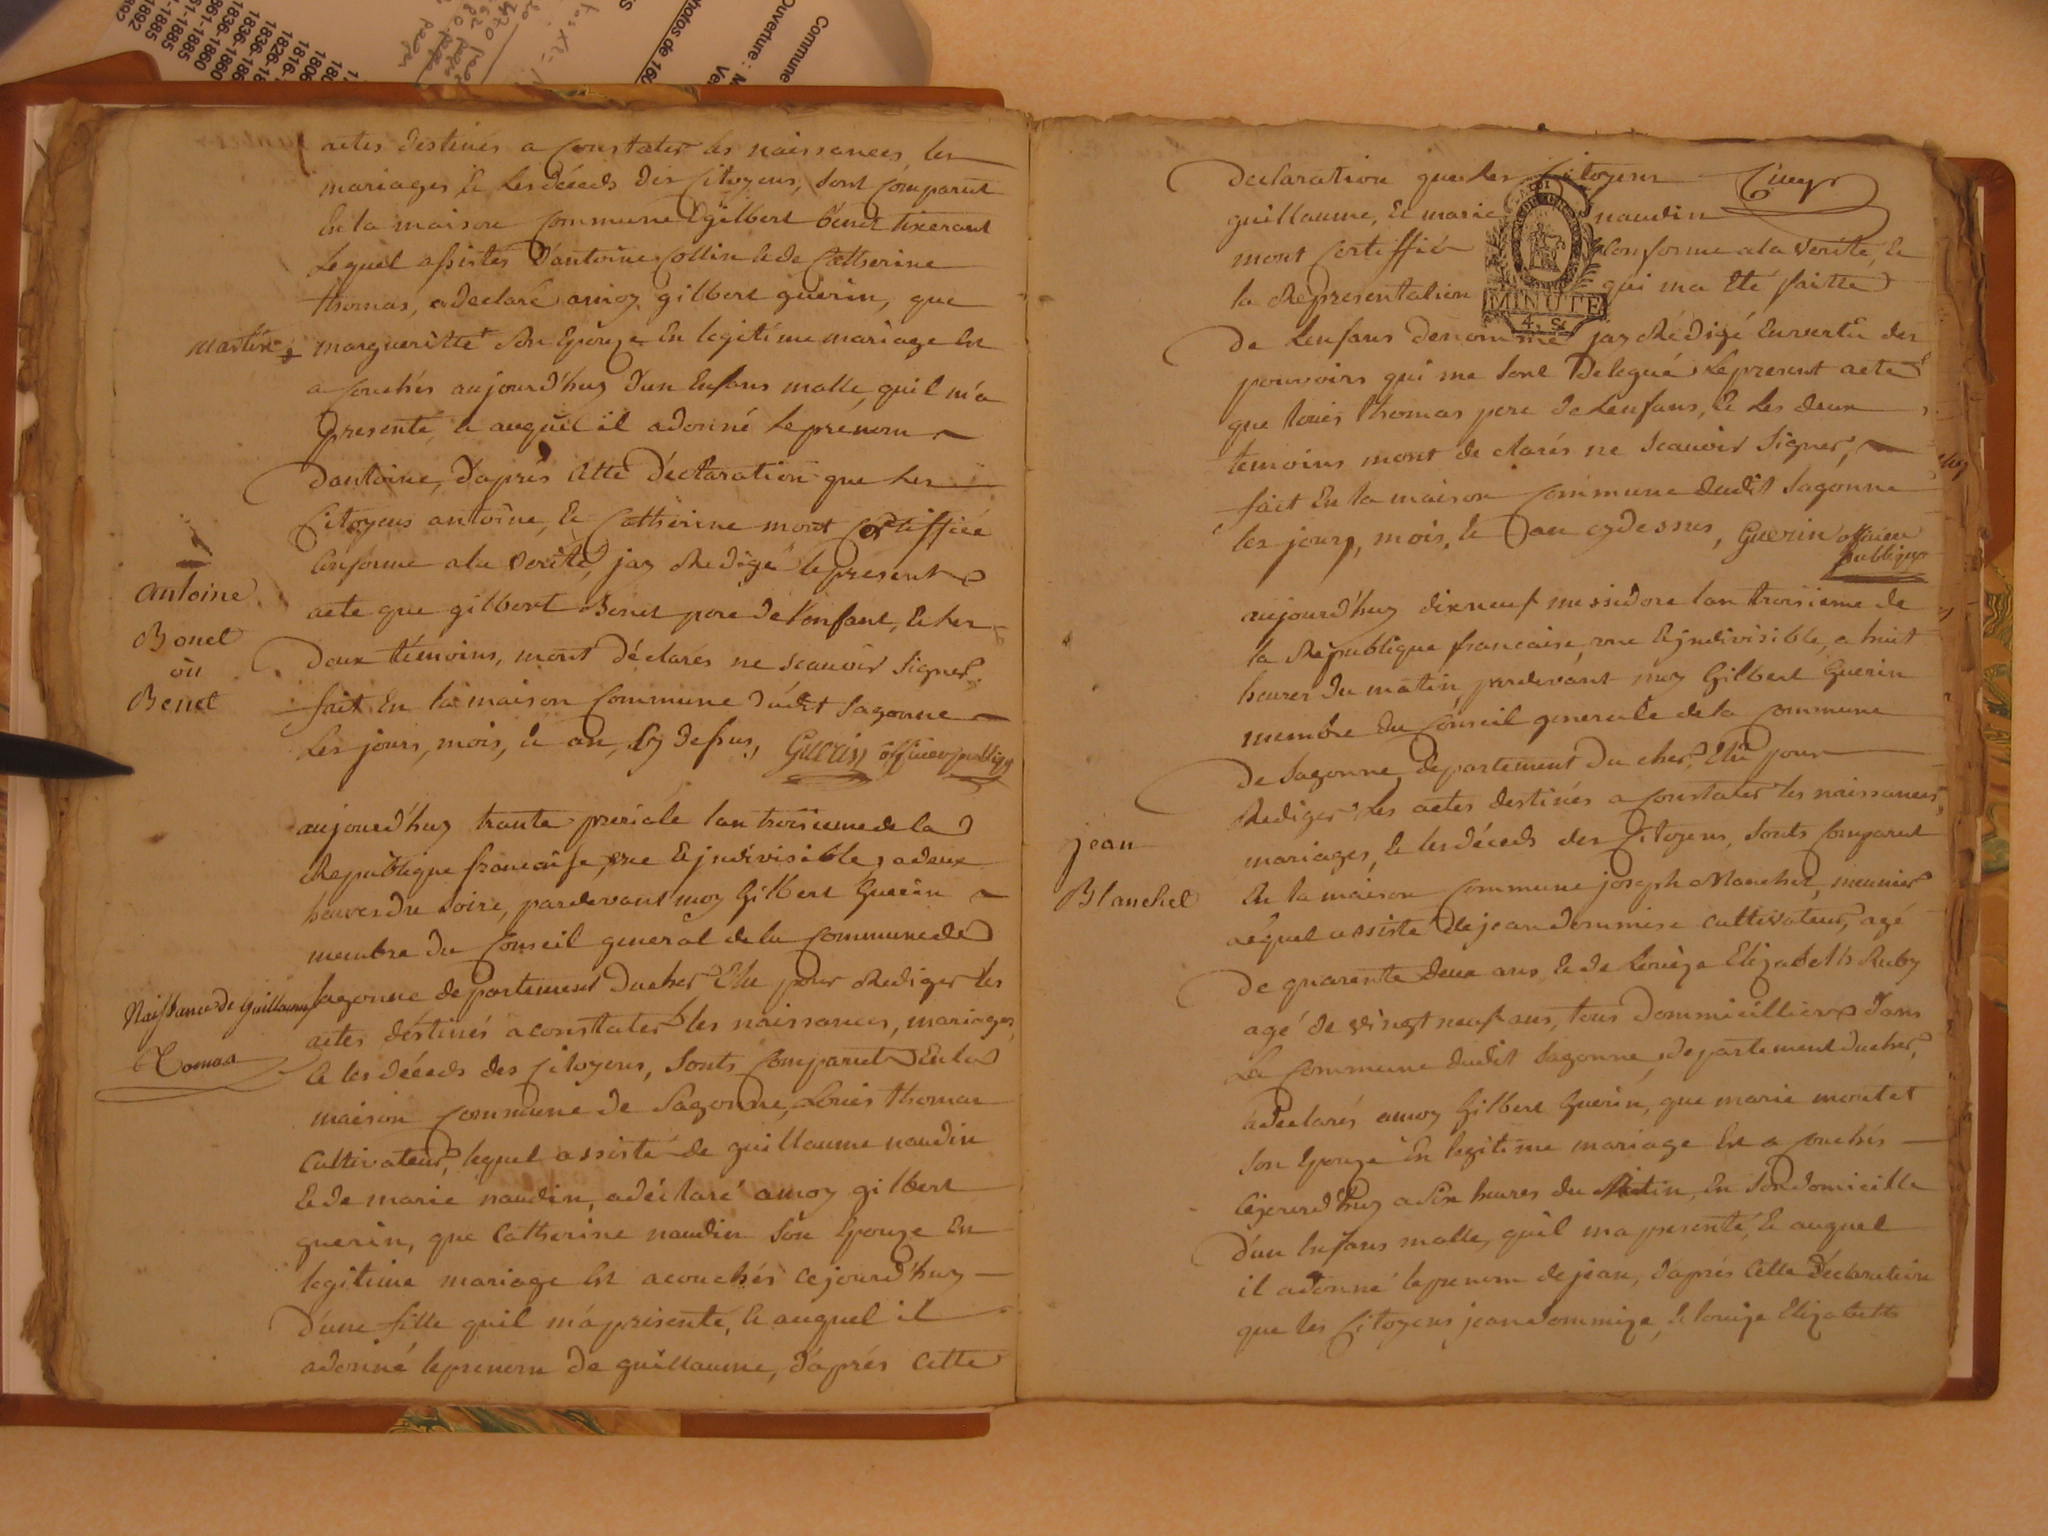 Commune
Ouverture : M
photos de 160
1806
1816-1
1826-18
1836-186
1836-1860
1861-1860
61-1885
-1885
1892
892
actes destinés a Constater les naissances les
mariages et les décèds des Citoyens, sont Comparut
En la maison Commune Gilbert benet tixerant
Lequel assistés D'antoine Collin et de Catherine
thomas, a declaré amoy gilbert guerin, que
Martin
margueritte son Epouze En legitime mariage Est
acouchés aujourd'huy D'un Enfans malle, quil m'a
presenté, et auquel il adonné le prénom
Dantoine, D'après Cette Déclaration que les
Citoyens antoine, et Catherine mont Certiffiée
Conforme ala verité, jay Redigé le present
acte que gilbert Benet pere de l'enfant, et les
Deux témoins, mont déclarés ne scauoir signer.
fait En la maison Commune dudit Sagonne
Les jours, mois, et an, Cy dessus, Guerin officier publiq
Antoine
Bonet
ou
Benet
aujourd'huy trante preriale lan troisieme de la
Republique francaise, une et jndivisible, a deux
heures du soire, pardevant moy Gilbert Guerin
membre du Conseil général de la Commune de
Sagonne departement Du cher Elu pour Rediger les
actes déstinés a constater les naissances, mariages,
et les décèds des Citoyens, Sonts Comparut En la
maison Commune de Sagonne, Louis thomas
Cultivateur, lequel assisté de guillaume naudin
et de marie naudin, adéclaré amoy gilbert
guerin, que Catherine naudin Son Epouze En
legitime mariage Est acouchés cejourd'huy
D'une fille quil m'a présenté, et auquel il
adonné le prenom de guillaume, d'après cette
Naissance de Guillaume
Tomas
Declaration que les Citoyens
guillaume, et marie naudin
mont Certiffié Conforme ala verité, et
la Representation qui ma Eté faitte
MINUTE
4. S.
De Lenfans denommé jay Rédigé En vertu des
pouvoirs qui me sont Delegué, Le present acte
que louis thomas pere de Lenfans, et les deux
temoins mont declarés ne scauoir signer,
fait En la maison Commune dudit Sagonne
les jours, mois, et an cy dessus, Guerin officier
publique
aujourd'huy dixneuf messidore lan troisieme de
la Republique francaise, une et jndivisible, a huit
heures du matin, pardevant moy Gilbert Guerin
membre du Conseil generale de la Commune
De Sagonne, departement du cher, Elu pour
Rediger Les actes destinés a Constater les naissances,
mariages, et les décèds des Citoyens, Sonts Comparut
En la maison Commune joseph Blanchet, meunier
lequel assisté de jean dommise cultivateur, agé
De quarente Deux ans, et de Louize Elizabeth Ruby
agé de vingt neuf ans, tous Dommicilliers Dans
La Commune dudit Sagonne, departement du cher,
adeclarés amoy Gilbert Guerin, que marie montet
Son Epouze En legitime mariage Est acouchés
Cejourd'huy a Six heures du Matin, En Son domicille
d'un Enfans malle, quil ma presenté, et auquel
il adonné le prenom de jean, daprès Cette Déclaration
que les Citoyens jean dommize, et louize Elizabette
jean
Blanchet